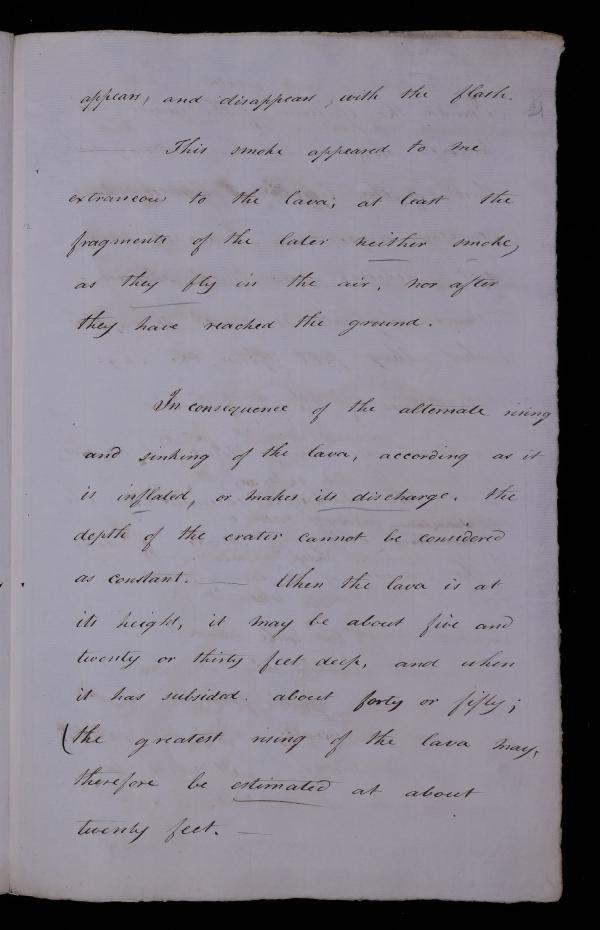 appears, and disappears, with the flash.
This smoke appeared to me
extraneous to the lava; at least the
fragments of the later neither smoke,
as they fly in the air, nor after
they have reached the ground.
In consequence of the alternate rising
and sinking of the lava, according as it
is inflated, or makes its discharge. the
depth of the crater cannot be considered
as constant. — When the lava is at
its height, it may be about five and
twenty or thirty feet deep, and when
it has subsided. about forty or fifty;
(the greatest rising of the lava may,
therefore be estimated at about
twenty feet. —